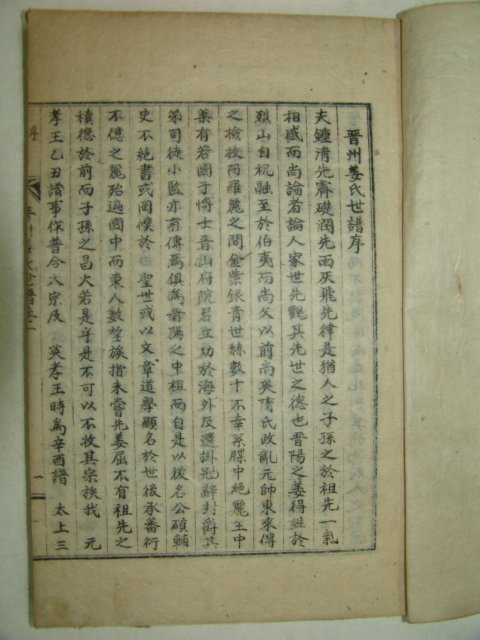 晋州姜氏世譜序
夫鍾清先霽礎潤先雨灰飛先律是猶人之子孫之於祖先一氣
相感而尚論者論人家世先觀其先世之德也晋陽之姜得姓於
烈山自祝融至於伯夷而尚父以前尚矣隋氏政亂元帥東來傳
之檢校而羅麗之間金紫銀青世赫數十不幸系牒中絶麗王中
葉有若國子博士晋山府院君立功於海外及還掛冠辭封爵其
弟司徒小監亦有傳焉俱爲晋陽之中祖而自是以後名公碩輔
史不絶書或罔僕於 聖世或以文章道學顯名於世後承蕃衍
不億之麗殆遍國中而東人數望族指未嘗先姜屈不有祖先之
積德於前而子孫之昌大若是乎是不可以不收其宗族哉 元
孝王乙丑譜事作普合六宗及 英孝王時爲辛酉譜 太上三
序
晋州姜氏世譜卷一
一